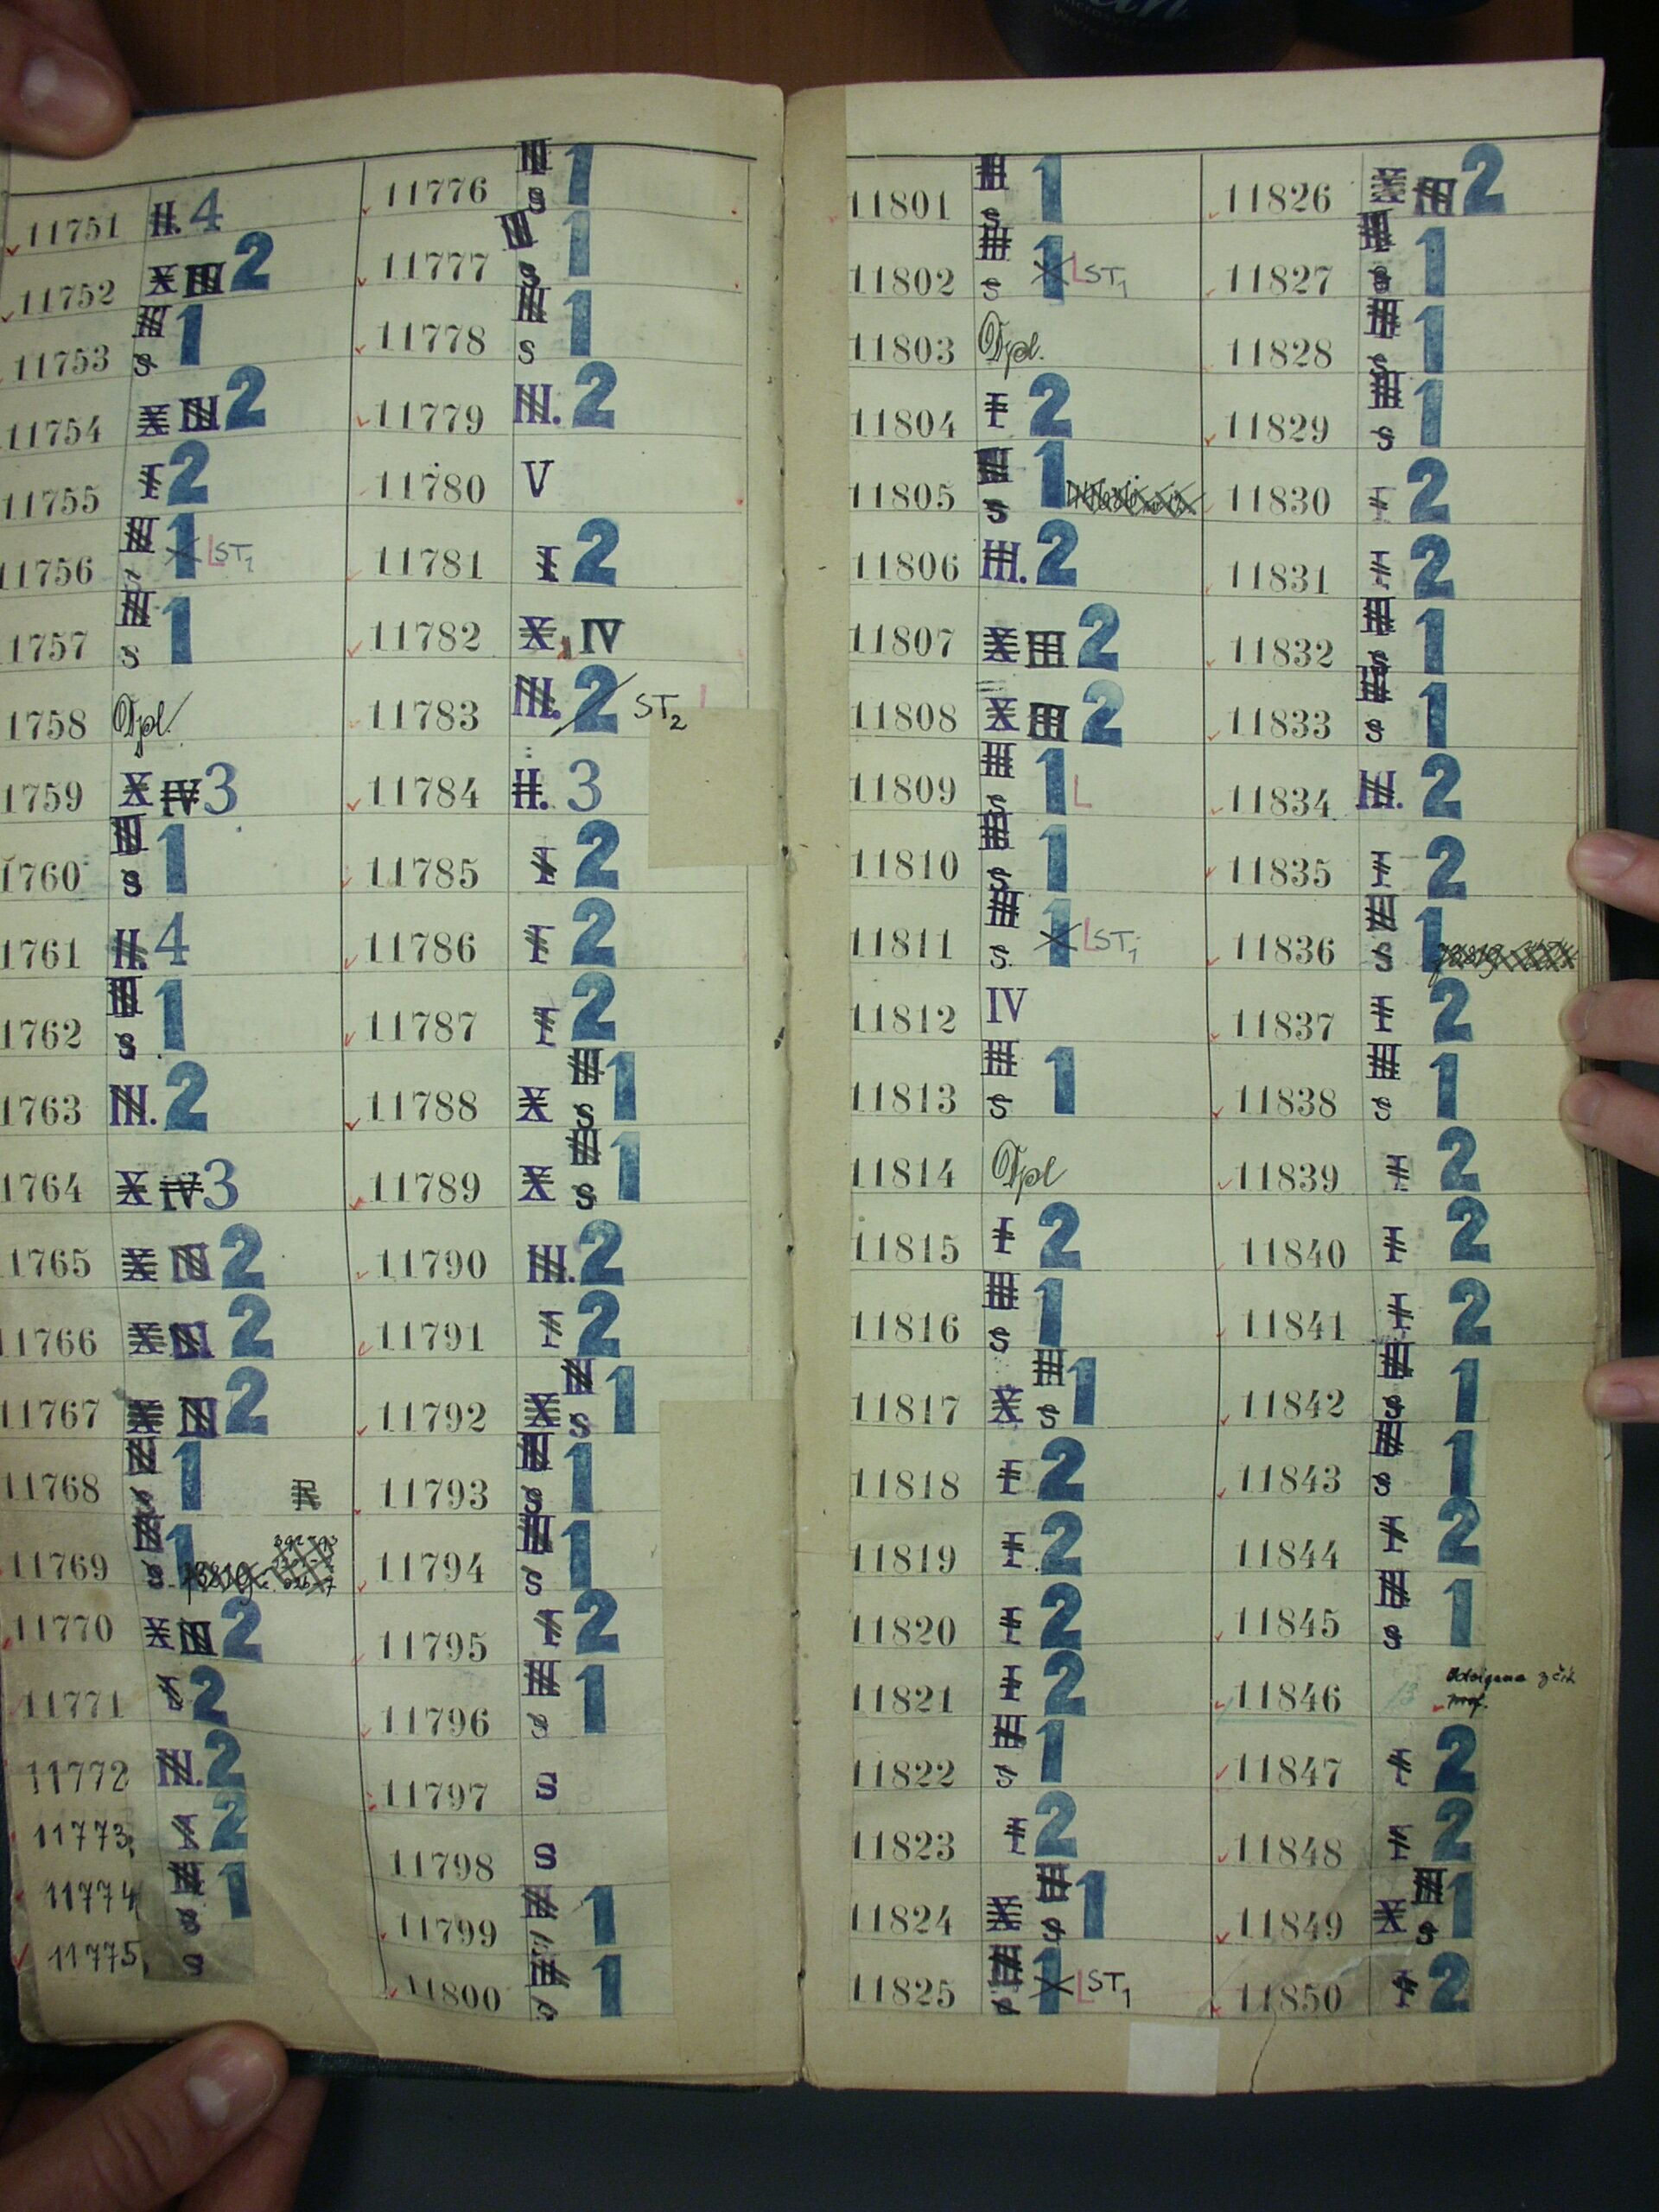 11751 II. 4
11752 X III 2
11753 III s 1
11754 X III 2
11755 I 2
11756 III s 1 L ST1
1757 III s 1
1758 Dpl.
1759 X IV 3
1760 III s 1
1761 II. 4
1762 III s 1
1763 III. 2
1764 X IV 3
1765 X III 2
11766 X III 2
11767 X III 2
11768 III s 1 R
11769 III s 1
11770 X III 2
11771 I 2
11772 III. 2
11773 I 2
11774 III s 1
11775 s
11776 III s 1
11777 III s 1
11778 III s 1
11779 III. 2
11780 V
11781 I 2
11782 X IV
11783 III. 2 ST2 L
11784 II. 3
11785 I 2
11786 I 2
11787 I 2
11788 X III s 1
11789 X III s 1
11790 III. 2
11791 I 2
11792 X III s 1
11793 III s 1
11794 III s 1
11795 I 2
11796 III s 1
11797 s
11798 s
11799 III s 1
11800 III s 1
11801 III s 1
11802 III s 1 L ST1
11803 Dpl.
11804 I 2
11805 III s 1
11806 III. 2
11807 X III 2
11808 X III 2
11809 III s 1 L
11810 III s 1
11811 III s. 1 L ST1
11812 IV
11813 III s 1
11814 Dpl
11815 I 2
11816 III s 1
11817 X III s 1
11818 I 2
11819 I 2
11820 I 2
11821 I 2
11822 III s 1
11823 I 2
11824 X III s 1
11825 III s 1 L ST1
11826 X III 2
11827 III s 1
11828 III s 1
11829 III s 1
11830 I 2
11831 I 2
11832 III s 1
11833 III s 1
11834 III. 2
11835 I 2
11836 III s 1
11837 I 2
11838 III s 1
11839 I 2
11840 I 2
11841 I 2
11842 III s 1
11843 III s 1
11844 I 2
11845 III s 1
11846 13
11847 I 2
11848 I 2
11849 X III s 1
11850 I 2